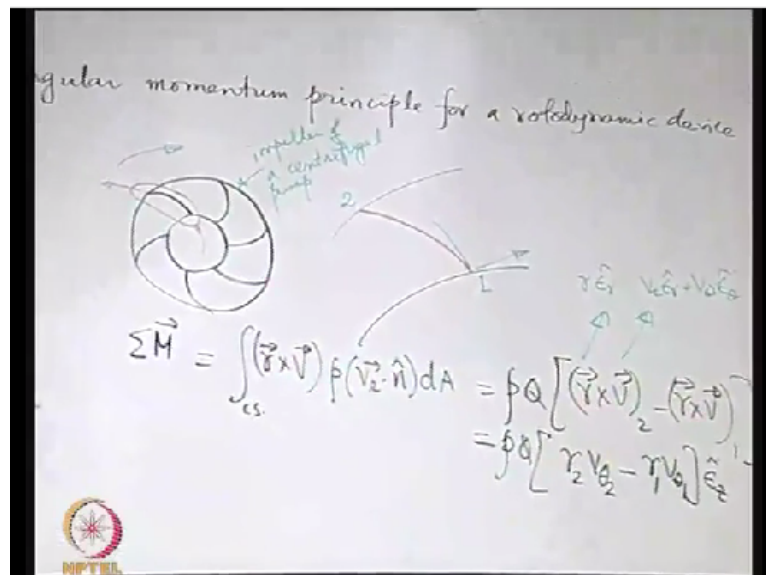 gular momentum principle for a rotodynamic device
impeller of
a centrifugal
pump
2
1
r ε̂r Vr ε̂r + Vθ ε̂θ
ΣM⃗ = ∫c.s. (r⃗ × V⃗) ρ(V⃗r · n̂) dA = ρQ[(r⃗ × V⃗)2 − (r⃗ × V⃗)1]
= ρQ[r2 Vθ2 − r1 Vθ1] ε̂z
NPTEL